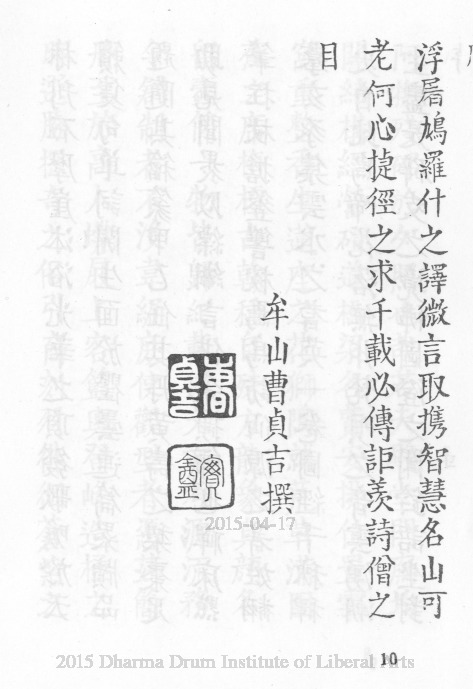 浮屠鳩羅什之譯微言取携智慧名山可
老何心捷徑之求千載必傳詎羡詩僧之
目
牟山曹貞吉撰
2015-04-17
10
2015 Dharma Drum Institute of Liberal Arts